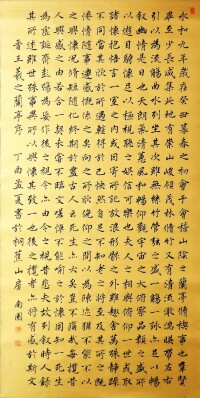 永和九年歲在癸丑暮春之初會于會稽山陰之蘭亭脩稧事也羣賢
畢至少長咸集此地有崇山峻領茂林脩竹又有清流激湍映帶左右
引以為流觴曲水列坐其次雖無絲竹管弦之盛一觴一詠亦足以暢
敘幽情是日也天朗氣清惠風和暢仰觀宇宙之大俯察品類之盛所
以遊目騁懷足以極視聽之娛信可樂也夫人之相與俯仰一世或取
諸懷抱悟言一室之內或因寄所託放浪形骸之外雖趣舍萬殊靜躁
不同當其欣於所遇蹔得於己怏然自足不知老之將至及其所之既
倦情隨事遷感慨係之矣向之所欣俛仰之間以為陳迹猶不能不以
之興懷況脩短隨化終期於盡古人云死生亦大矣豈不痛哉每攬昔
人興感之由若合一契未嘗不臨文嗟悼不能喻之於懷固知一死生
為虛誕齊彭殤為妄作後之視今亦由今之視昔悲夫故列敘時人錄
其所述雖世殊事異所以興懷其致一也後之攬者亦將有感於斯文
晉王羲之蘭亭序 丁酉孟夏書於 山房